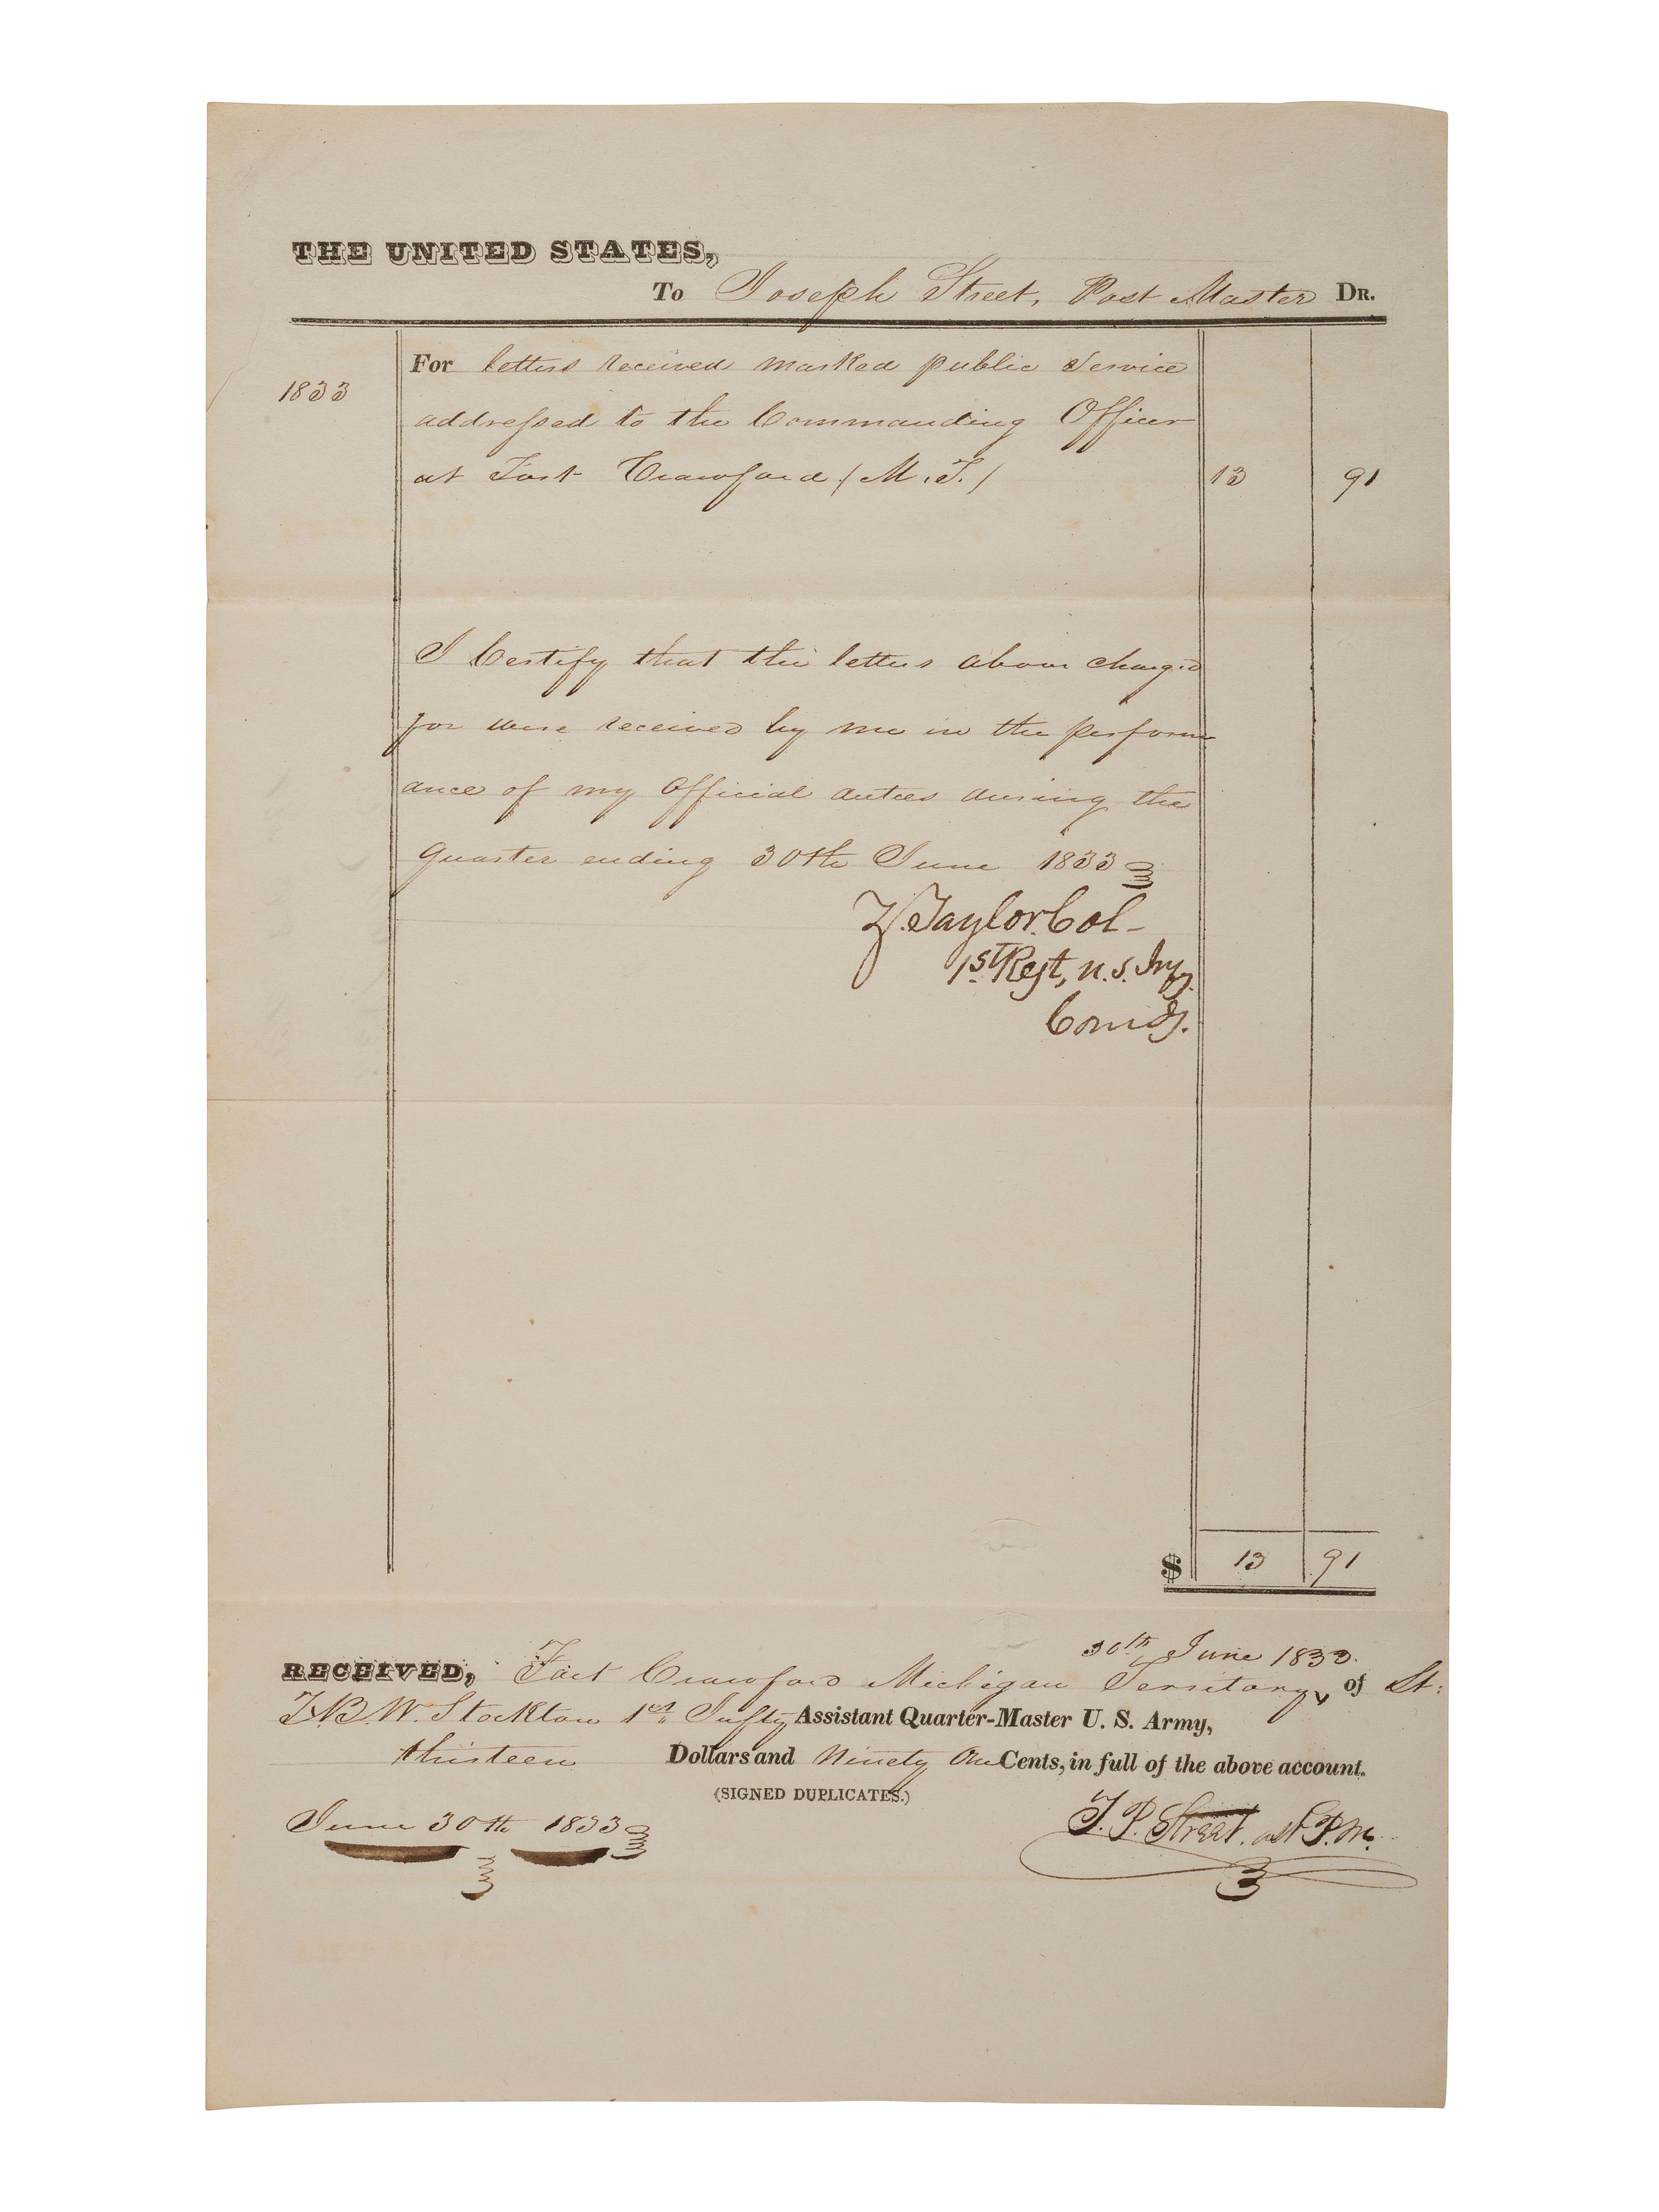 THE UNITED STATES,
To Joseph Street, Post Master DR.
For letters received marked public Service
1833
addressed to the Commanding Officer
at Fort Crawford (M.T.) 13 91
I Certify that the letters above charged
for were received by me in the perform
ance of my Official duties during the
quarter ending 30th June 1833
Z. Taylor. Col-
1st Regt, U.S. Infy.
Comdg.
$ 13 91
30th June 1833.
RECEIVED, Fort Crawford Michigan Territory, of Lt:
T.B.W. Stockton 1st Infty Assistant Quarter-Master U. S. Army,
thirteen Dollars and Ninety One Cents, in full of the above account.
(SIGNED DUPLICATES.)
June 30th 1833
T. P. Street. asst P.M.